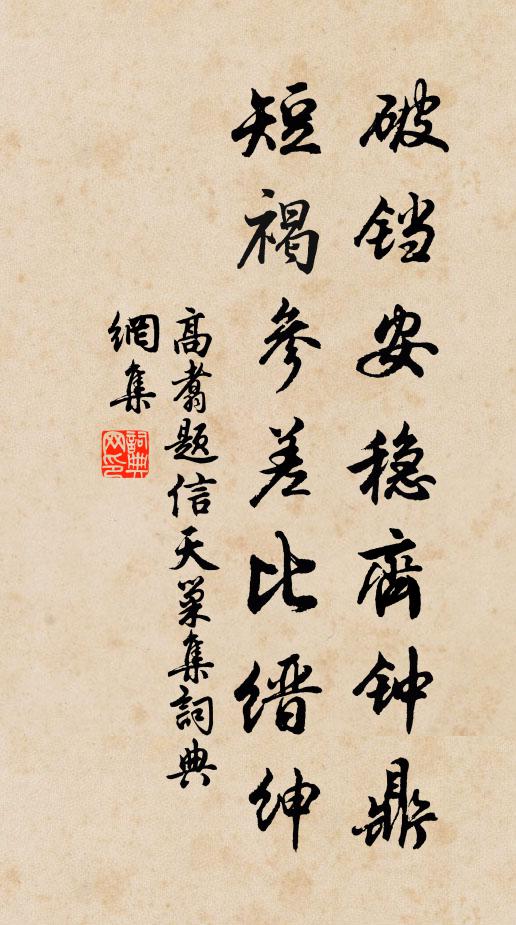 破铛安稳齊钟鼎
短褐参差比缙绅
高翥题信天巢集詞典
網集
詞典网印